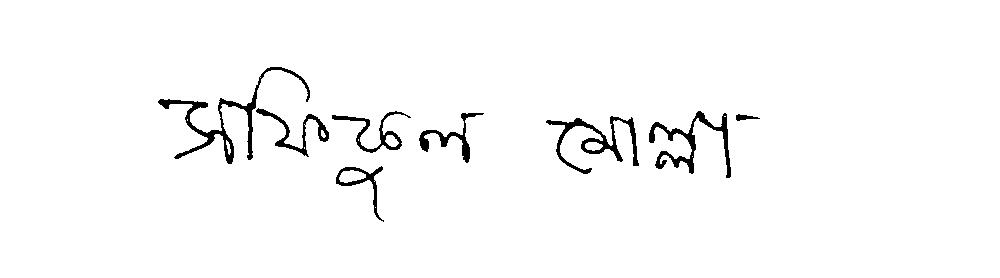 সফিছুল মোল্লা